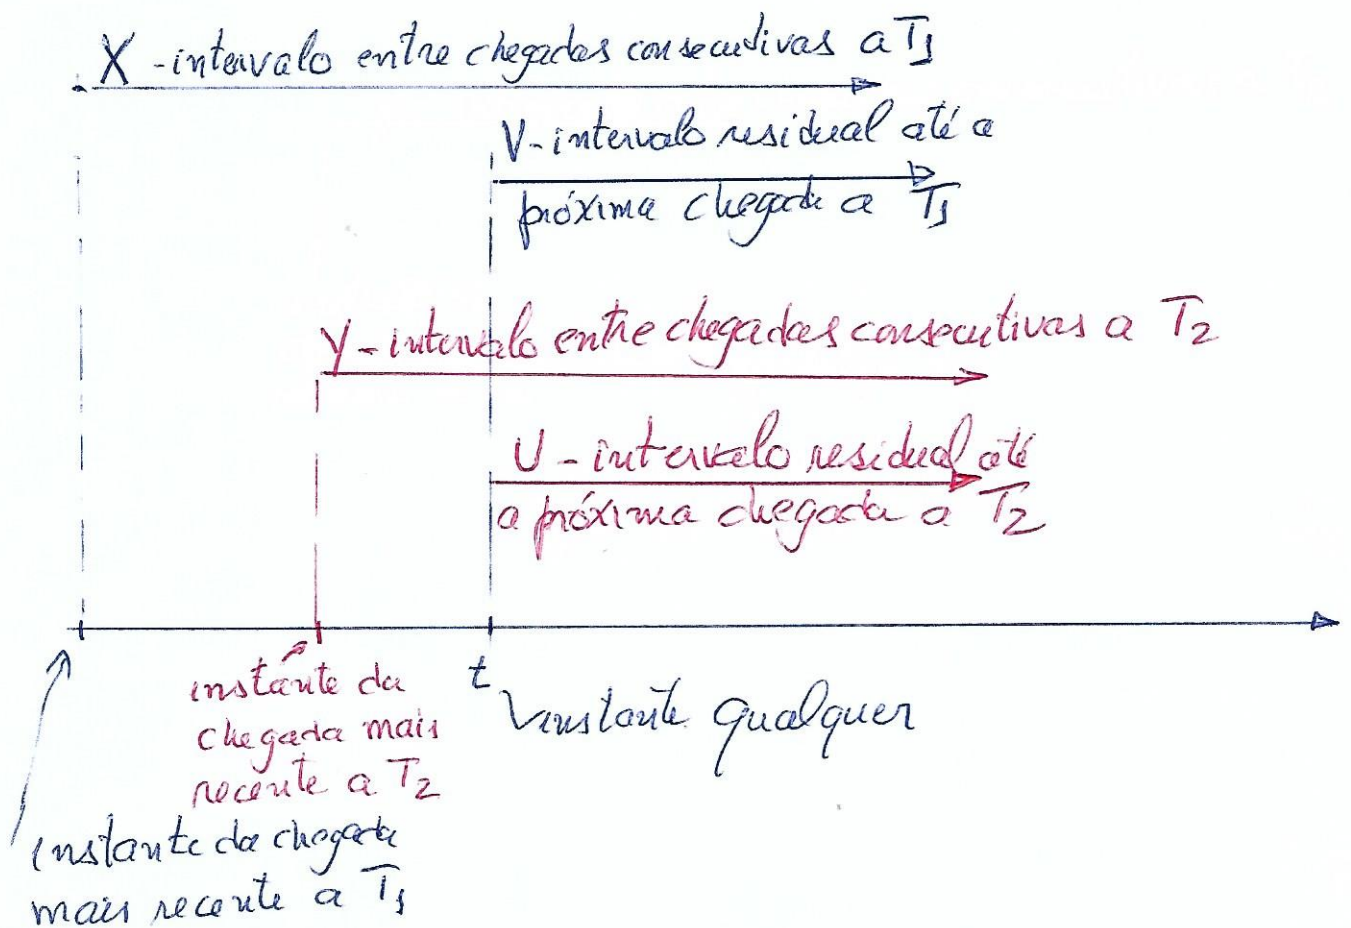 X - intervalo entre chegadas consecutivas a T1
V - intervalo residual até a
próxima chegada a T1
Y - intervalo entre chegadas consecutivas a T2
U - intervalo residual até
a próxima chegada a T2
t
instante da
chegada mais
recente a T2
instante qualquer
instante da chegada
mais recente a T1